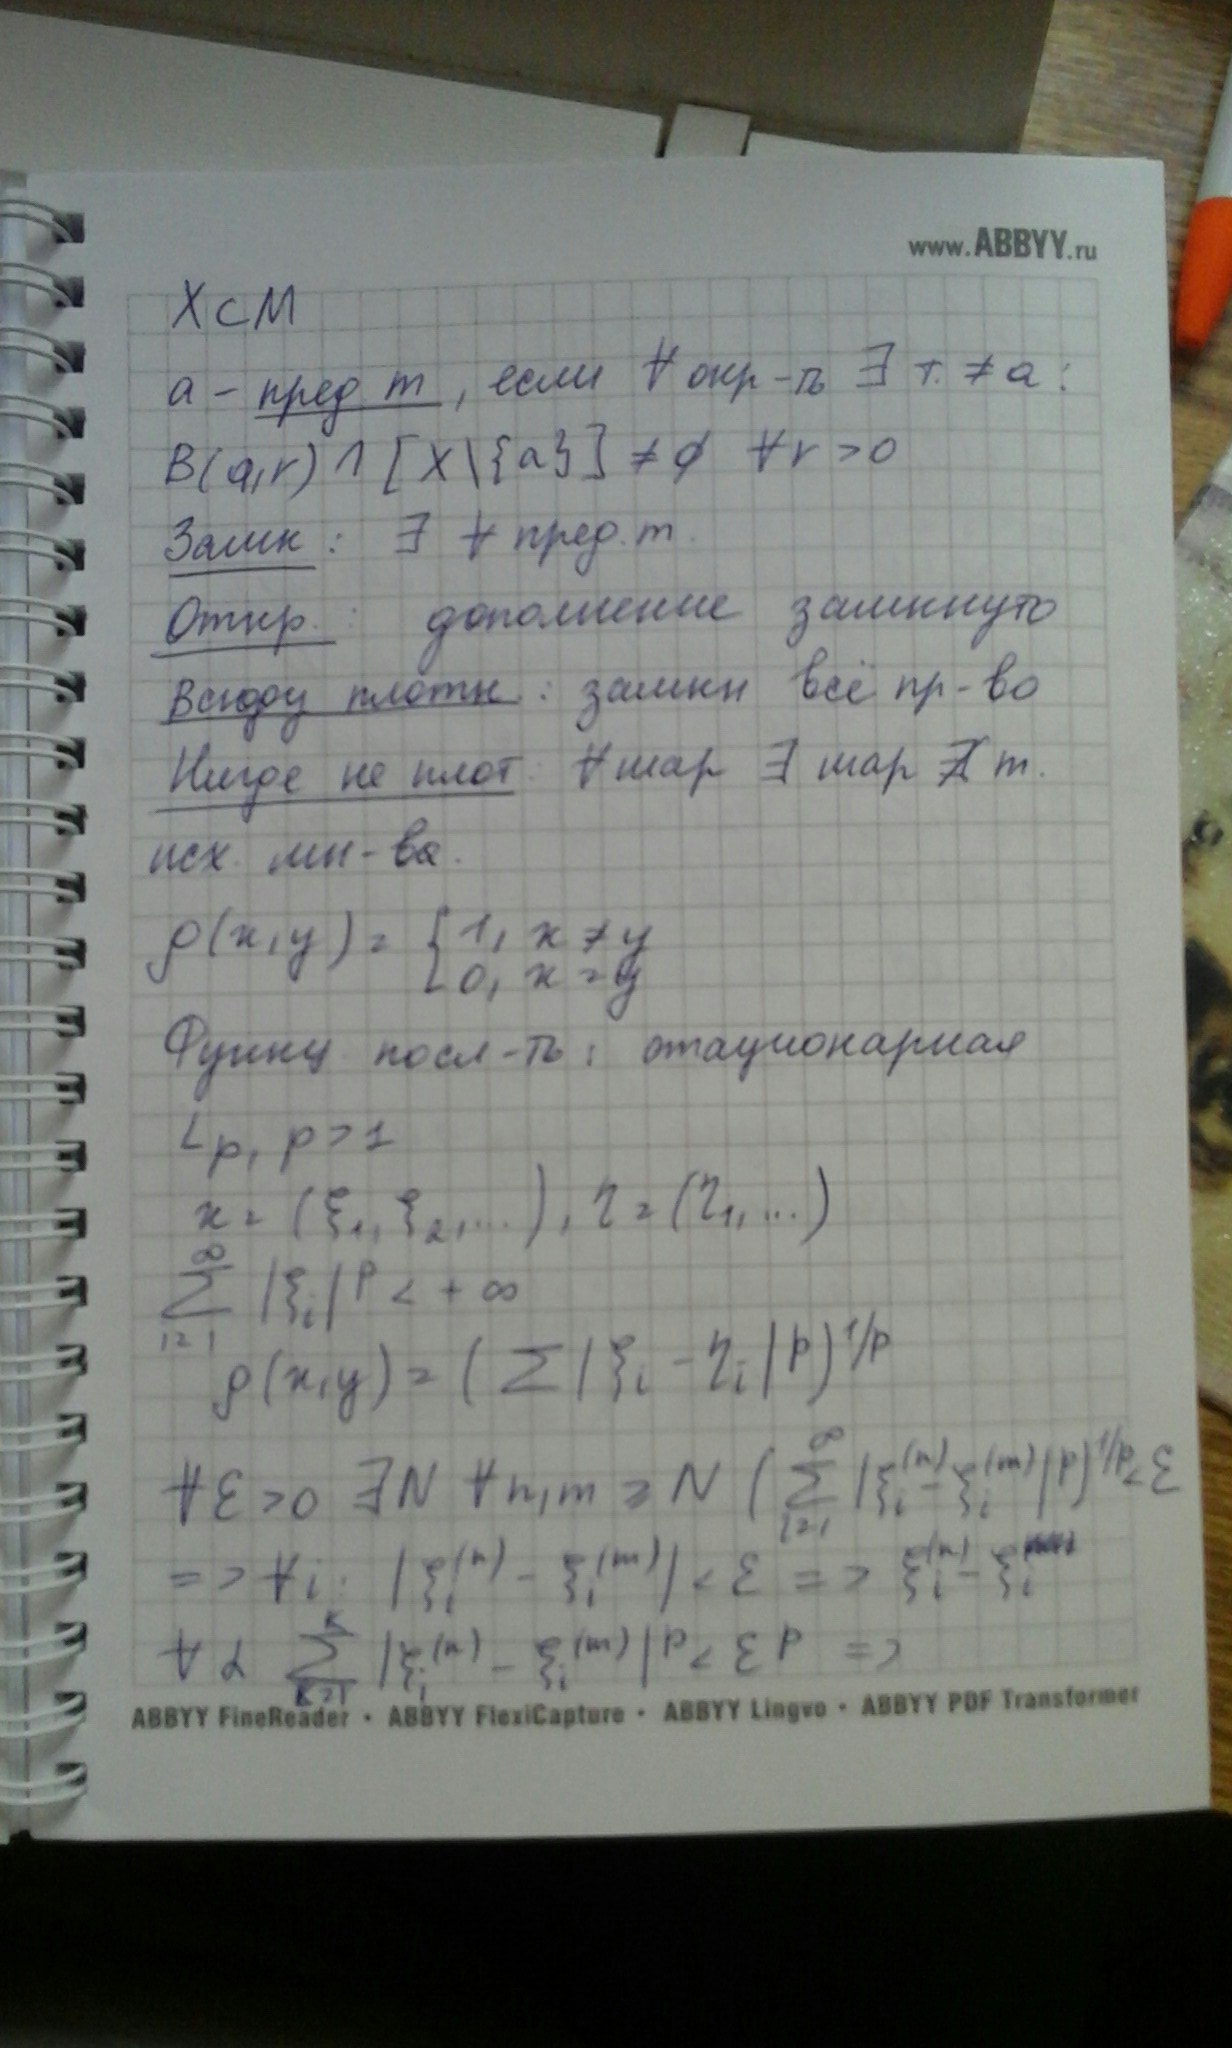 www.ABBYY.ru
X ⊂ M
a – пред. т, если ∀ окр-ть ∃ т. ≠ a:
B(a,r) ∩ [X\{a}] ≠ ∅ ∀r > 0
Замк: ∋ ∀ пред. т.
Откр.: дополнение замкнуто
Всюду плотн: замкн всё пр-во
Нигде не плот: ∀ шар ∃ шар ∌ т.
исх. мн-ва.
ρ(x,y) = { 1, x ≠ y
0, x = y
Функц посл-ть: стационарная
Lp, p > 1
x = (ξ1, ξ2, ...), η = (η1, ...)
∞ ∑ i=1 |ξi|^p < + ∞
ρ(x,y) = (∑ |ξi − ηi|^p)^1/p
∀ε > 0 ∃N ∀n,m ≥ N (∞ ∑ i=1 |ξi^(n) − ξi^(m)|^p)^1/p < ε
=> ∀i: |ξi^(n) − ξi^(m)| < ε => ξi^(n) − ξi
∑ |ξi^(n) − ξi^(m)|^p < ε^p =>
ABBYY FineReader • ABBYY FlexiCapture • ABBYY Lingvo • ABBYY PDF Transformer